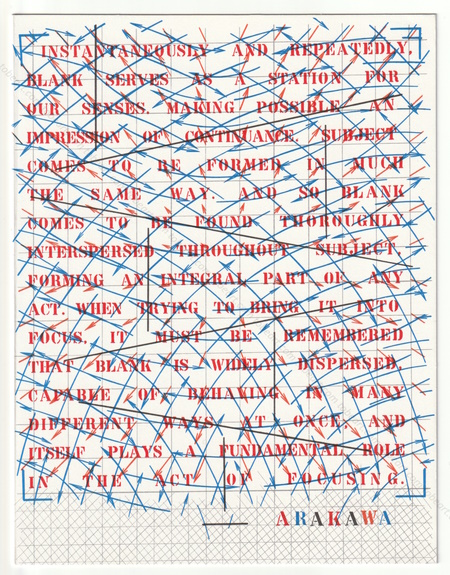 INSTANTANEOUSLY AND REPEATEDLY,
BLANK SERVES AS A STATION FOR
OUR SENSES, MAKING POSSIBLE AN
IMPRESSION OF CONTINUANCE. SUBJECT
COMES TO BE FORMED IN MUCH
THE SAME WAY. AND SO BLANK
COMES TO BE FOUND THOROUGHLY
INTERSPERSED THROUGHOUT SUBJECT
FORMING AN INTEGRAL PART OF ANY
ACT. WHEN TRYING TO BRING IT INTO
FOCUS, IT MUST BE REMEMBERED
THAT BLANK IS WIDELY DISPERSED,
CAPABLE OF BEHAVING IN MANY
DIFFERENT WAYS AT ONCE, AND
ITSELF PLAYS A FUNDAMENTAL ROLE
IN THE ACT OF FOCUSING.
ARAKAWA